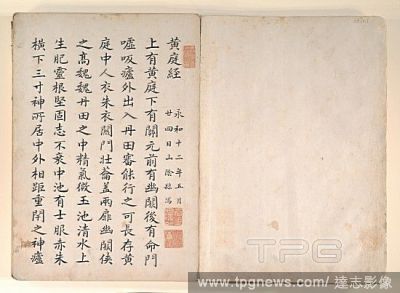 黄庭經
永和十二年五月
廿四日山陰縣寫
上有黄庭下有關元前有幽闕後有命門
噓吸廬外出入丹田審能行之可長存黄
庭中人衣朱衣關門壯蘥蓋兩扉幽闕俠
之高魏魏丹田之中精氣微玉池清水上
生肥靈根堅固志不衰中池有士服赤朱
橫下三寸神所居中外相距重閉之神廬
TPG
www.tpgnews.com / 達志影像